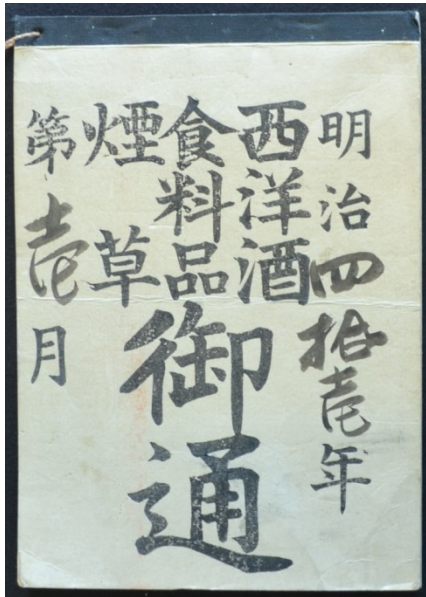 明治四拾壱年
西洋酒
食料品
煙草
御通
第壱月